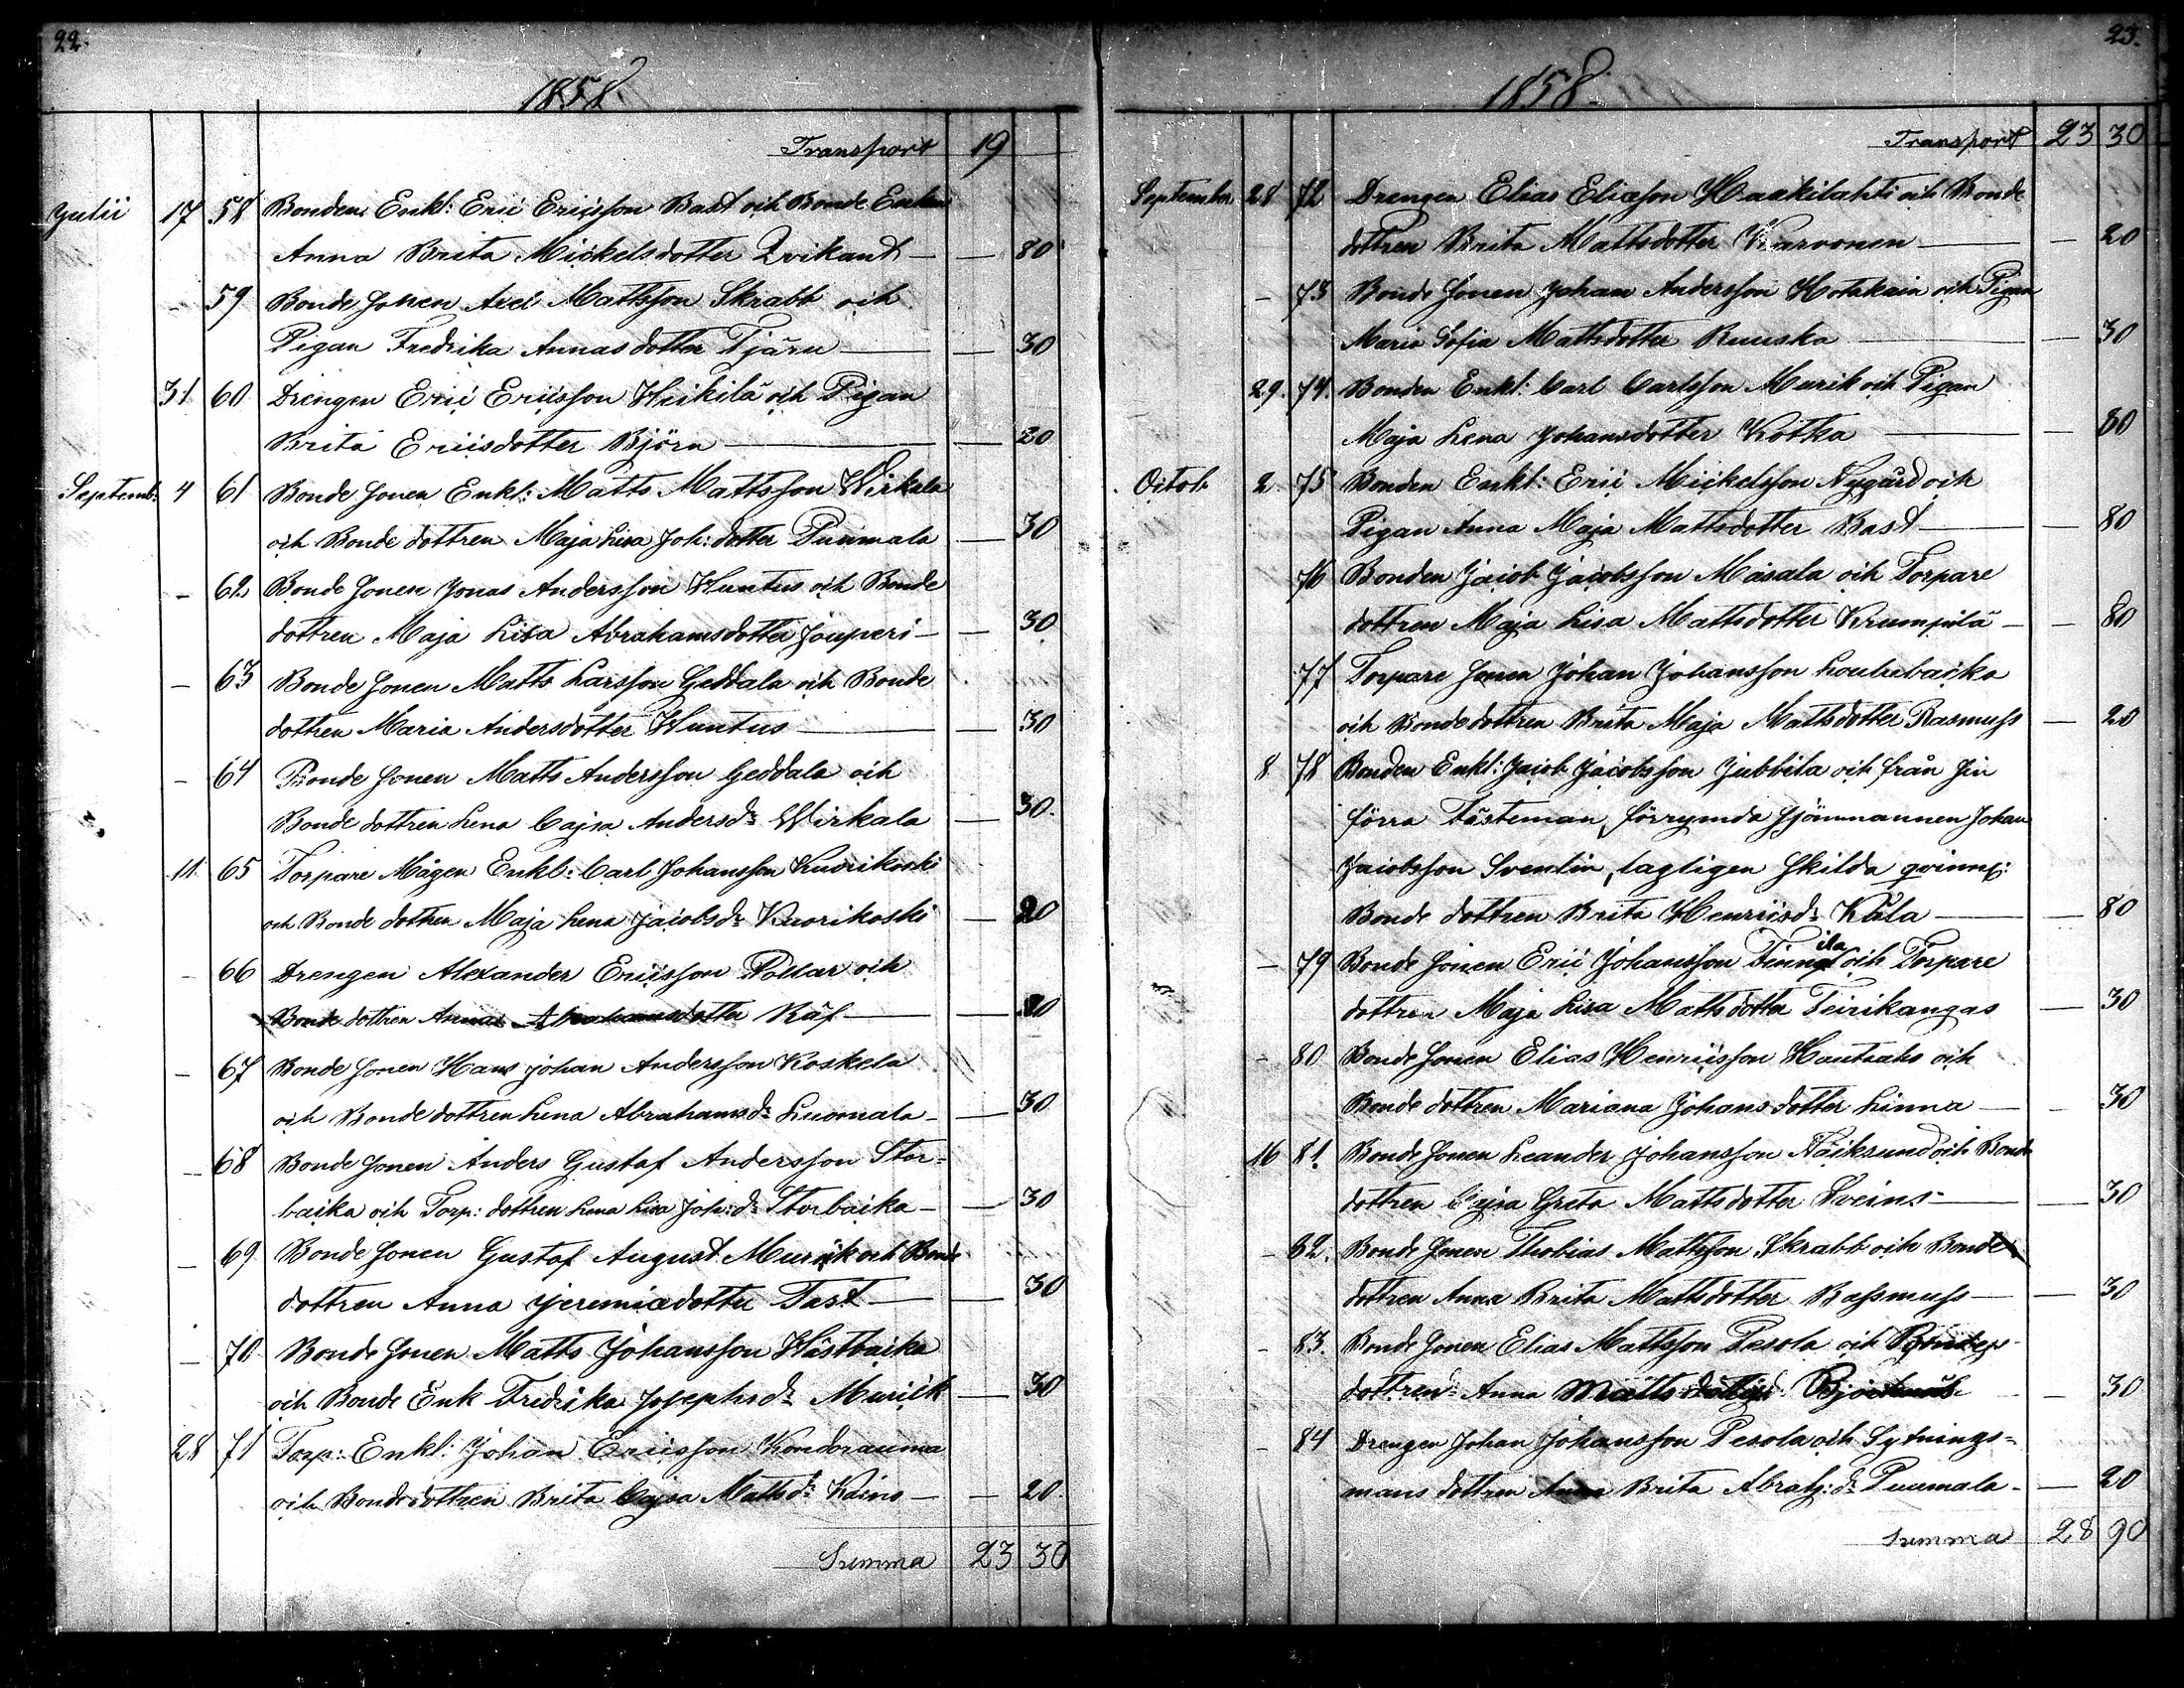 22.
1858.
Transport 19
Julii 17 58 Bonden Enkl: Eric Ericsson Bast och Bonde Enkan
Anna Brita Mickelsdotter Qvikant — — 80
— 59 Bonde Sonen Axel Mattsson Skrabb och
Pigan Fredrika Annasdotter Tjäru — — 30
31 60 Drengen Eric Ericsson Heikilä och Pigan
Brita Ericsdotter Björn — — 20
Septemb: 4 61 Bonde Sonen Enkl: Matts Mattsson Wirkala
och Bonde dottren Maja Lisa Joh: dotter Puumala — 30
— 62 Bonde Sonen Jonas Andersson Huntus och Bonde
dottren Maja Lisa Abrahamsdotter Jouperi — — 30
— 63 Bonde Sonen Matts Larsson Geddala och Bonde
dottren Maria Andersdotter Huntus — — 30
— 64 Bonde Sonen Matts Andersson Geddala och
Bonde dottren Lena Cajsa Andersd:r Wirkala — 30.
11. 65 Torpare Mågen Enkl: Carl Johansson Kuorikoski
och Bonde dottren Maja Lena Jacobsd:r Kuorikoski — 20
— 66 Drengen Alexander Ericsson Pollar och
Bonde dottren Anna Abrahamsdotter Räf — — 20
— 67 Bonde Sonen Hans Johan Andersson Koskela
och Bonde dottren Lena Abrahamsd:r Luomala — — 30
— 68 Bonde Sonen Anders Gustaf Andersson Stor-
backa och Torp: dottren Lena Lisa Joh: d:r Storbacka — — 30
— 69 Bonde Sonen Gustaf August Murick och Bonde
dottren Anna Jeremiædotter Tast — — 30
— 70 Bonde Sonen Matts Johansson Hästbacka
och Bonde Enk Fredrika Josephsd:r Murick — 30
28 71 Torp: Enkl: Johan Ericsson Kondorauma
och Bondedottren Brita Cajsa Mattsd:r Kaino — — 20.
Summa 23 30
23.
1858.
Transport 23 30
September 28 72 Drengen Elias Eliæson Haakilahti och Bonde
dottren Brita Mattsdotter Karvonen — — 20
— 73 Bonde Sonen Johan Andersson Hotakain och Pigan
Maria Sofia Mattsdotter Ruuska — — 30
29. 74. Bonden Enkl: Carl Carlsson Murik och Pigan
Maja Lena Johansdotter Kotka — — 80
Octob 2. 75 Bonden Enkl: Eric Mickelsson Nygård och
Pigan Anna Maja Mattsdotter Bast — — 80
76 Bonden Jacob Jacobsson Måsala och Torpare
dottren Maja Lisa Mattsdotter Krumpilä — — 80
77 Torpare Sonen Johan Johansson Loukebacka
och Bonde dottren Brita Maja Mattsdotter Rasmuss — 20
8 78 Bonden Enkl: Jacob Jacobsson Jubbila och från sin
förra Fästeman, förrymda Sjömannen Johan
Jacobsson Svenlin, lagligen skilda qvinnsp:
Bonde dottren Brita Henricsd:r Kåla — — 80
— 79 Bonde Sonen Eric Johansson Finnila och Torpare
dottren Maja Lisa Mattsdotter Teirikangas — 30
— 80 Bonde Sonen Elias Henricsson Hautaho och
Bonde dottren Mariana Johansdotter Linna — — 30
16 81. Bonde Sonen Leander Johansson Näiksund och Bonde
dottren Cajsa Greta Mattsdotter Sveins — — 30
— 82. Bonde Sonen Thobias Mattsson Skrabb och Bonde
dottren Anna Brita Mattsdotter Rassmuss — — 30
— 83. Bonde Sonen Elias Mattsson Pesola och Bonde
dottren Anna Matts — — 30
— 84 Drengen Johan Johansson Pesola och Sytnings-
mans dottren Anna Brita Abrah: d:r Puumala — — 20
Summa 28 90